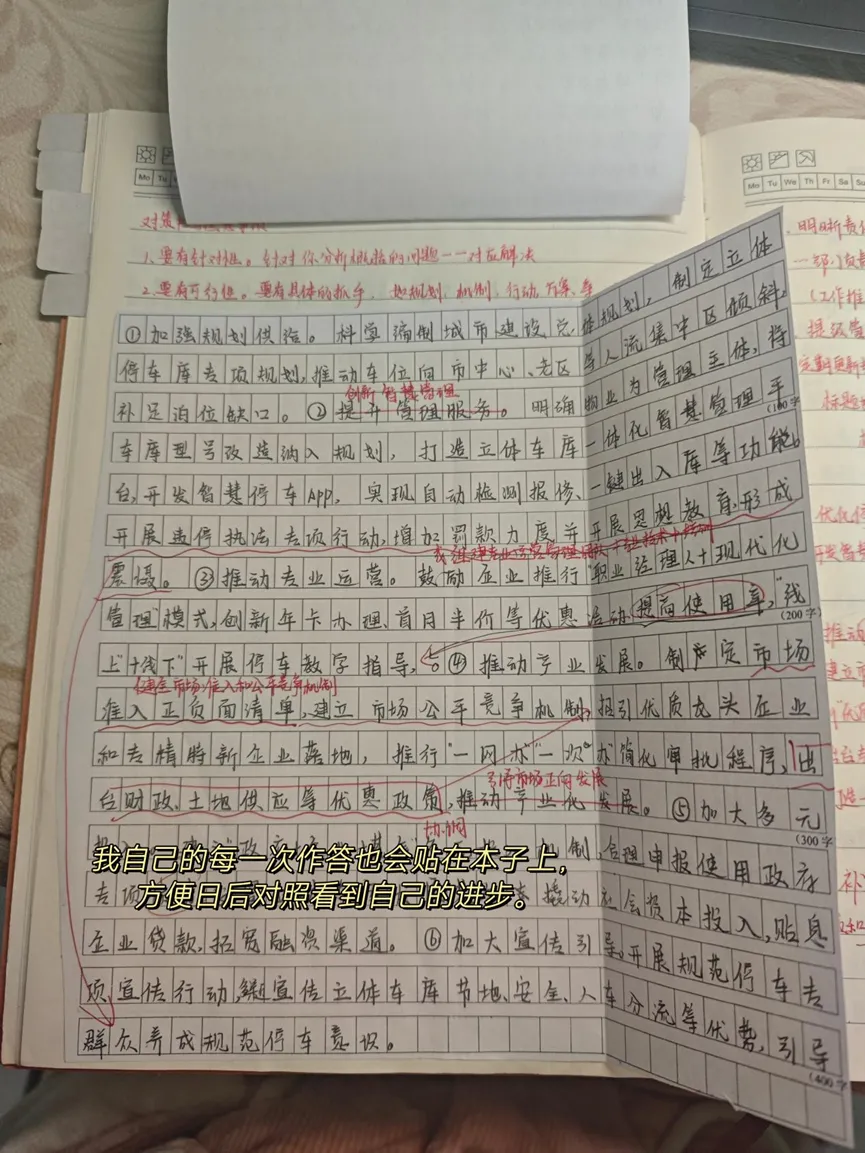 Mo Tu
Mo Tu We Th Fr Sa Su
1.要有针对性。针对你分析概括的问题一一对应解决
2.要有可行性。要有具体的抓手,如规划、机制、行动、方案、等
①加强规划供给。科学编制城市建设总体规划,制定立体
停车库专项规划,推动车位向市中心、老区等人流集中区倾斜,
创新智慧管理
补足泊位缺口。②提升管理服务。明确物业为管理主体,将
(100字)
车库型号改造纳入规划,打造立体车库一体化智慧管理平
台,开发智慧停车App,实现自动检测报修、一键出入库等功能。
开展违停执法专项行动,增加罚款力度并开展思想教育,形成
震慑。③推动专业运营。鼓励企业推行"职业经理人+现代化
管理"模式,创新年卡办理、首月半价等优惠活动提高使用率,"线
(200字)
上+线下"开展停车数字指导。④推动产业发展。制定市场
健全市场准入和公平竞争机制
准入正负面清单,建立市场公平竞争机制,招引优质龙头企业
和专精特新企业落地,推行"一网办""一次办"简化审批程序,出
引导市场正向发展
台财政、土地供应等优惠政策,推动产业化发展。⑤加大多元
(300字)
协调
机制,合理申报使用政府
专项 撬动社会资本投入,贴息
企业贷款,拓宽融资渠道。⑥加大宣传引导。开展规范停车专
项宣传行动,宣传立体车库节地、安全、人车分流等优势,引导
(400字)
群众养成规范停车意识。
我自己的每一次作答也会贴在本子上,
方便日后对照看到自己的进步。